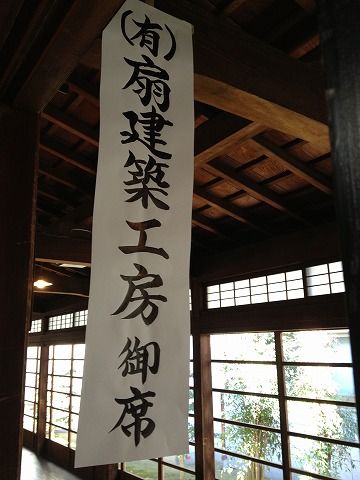 (有)扇建築工房御席